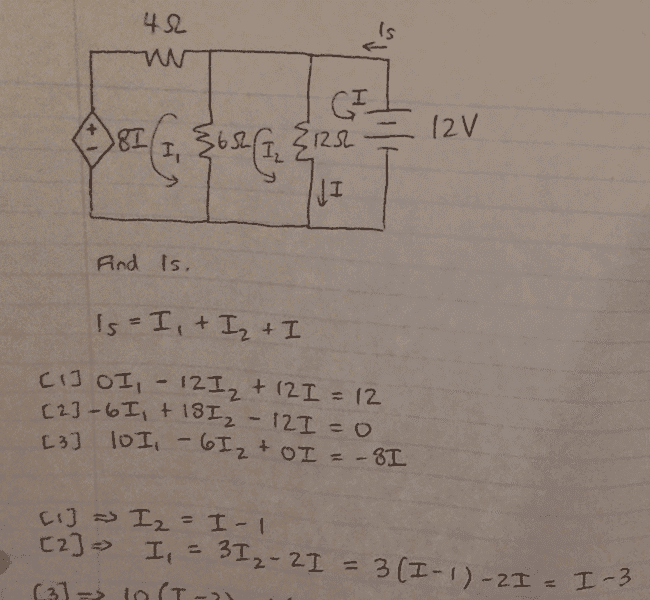 4Ω
Is
8I
+
-
I₁
6Ω
I₂
12Ω
I
12V
↓I
Find Is.
Is = I₁ + I₂ + I
[1] 0I₁ - 12I₂ + 12I = 12
[2] -6I₁ + 18I₂ - 12I = 0
[3] 10I₁ - 6I₂ + 0I = -8I
[1] ⇒ I₂ = I - 1
[2] ⇒ I₁ = 3I₂ - 2I = 3(I-1) - 2I = I - 3
[3] ⇒ 10(I-3)